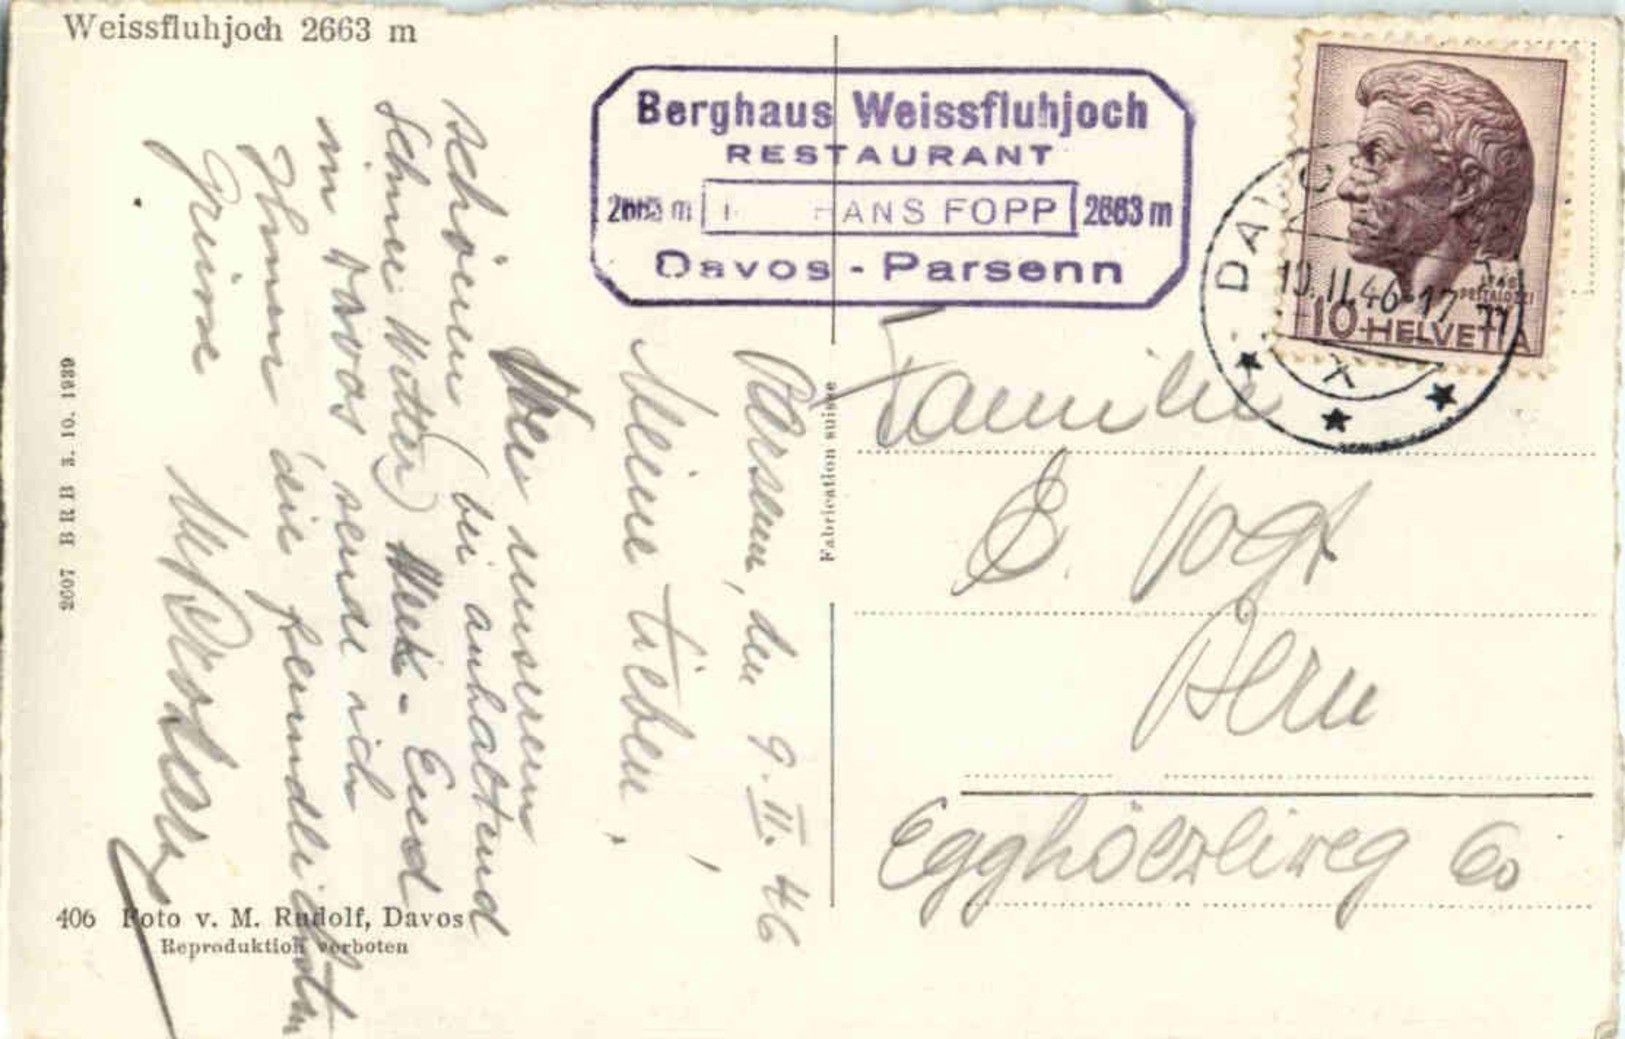 Weissfluhjoch 2663 m
Berghaus Weissfluhjoch
RESTAURANT
2663 m HANS FOPP 2663 m
Davos - Parsenn
DAVOS
10.II.46-17
1746
PESTALOZZI
10 HELVETIA
Parsenn, den 9. II. 46
Meine Lieben,
Von unserem
schönen (bei anhaltend
schönem Wetter) Week-End
in Davos sende ich
Ihnen die freundlichsten
Grüsse
Familie
E. Vogt
Bern
Egghölzliweg 60
Fabrication suisse
2607 BRB 3. 10. 1939
406 Foto v. M. Rudolf, Davos
Reproduktion verboten